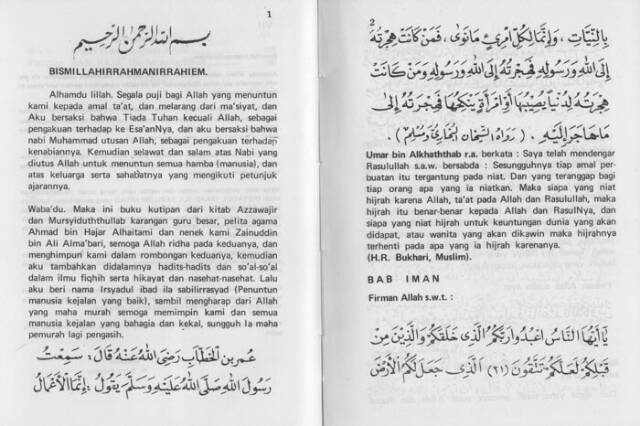 1
بسم الله الرحمن الرحيم
BISMILLAHIRRAHMANIRRAHIEM.
Alhamdu lillah. Segala puji bagi Allah yang menuntun
kami kepada amal ta'at, dan melarang dari ma'siyat, dan
Aku bersaksi bahwa Tiada Tuhan kecuali Allah, sebagai
pengakuan terhadap ke Esa'anNya, dan aku bersaksi bahwa
nabi Muhammad utusan Allah, sebagai pengakuan terhadap
kenabiannya. Kemudian selawat dan salam atas Nabi yang
diutus Allah untuk menuntun semua hamba (manusia), dan
atas keluarga serta sahabatnya yang mengikuti petunjuk
ajarannya.
Waba'du. Maka ini buku kutipan dari kitab Azzawajir
dan Mursyiduththullab karangan guru besar, pelita agama
Ahmad bin Hajar Alhaitami dan nenek kami Zainuddin
bin Ali Alma'bari, semoga Allah ridha pada keduanya, dan
menghimpun kami dalam rombongan keduanya, kemudian
aku tambahkan didalamnya hadits-hadits dan so'al-so'al
dalam ilmu fiqhih serta hikayat dan nasehat-nasehat. Lalu
aku beri nama Irsyadul ibad ila sabilirrasyad (Penuntun
manusia kejalan yang baik), sambil mengharap dari Allah
yang maha murah semoga memimpin kami dan semua
manusia kejalan yang bahagia dan kekal, sungguh Ia maha
pemurah lagi pengasih.
عمر بن الخطاب رضي الله عنه قال : سمعت
رسول الله صلى الله عليه وسلم يقول : إنما الأعمال
2
بالنيات ، وإنما لكل امرئ مانوى ، فمن كانت هجرته
إلى الله ورسوله فهجرته إلى الله ورسوله ومن كانت
هجرته لدنيا يصيبها أو امرأة ينكحها فهجرته إلى
ما هاجر إليه . ( رواه الشيخان البخاري ومسلم ) .
Umar bin Alkhaththab r.a. berkata : Saya telah mendengar
Rasulullah s.a.w. bersabda : Sesungguhnya tiap amal per-
buatan itu tergantung pada niat. Dan yang teranggap bagi
tiap orang apa yang ia niatkan. Maka siapa yang niat
hijrah karena Allah, ta'at pada Allah dan Rasulullah, maka
hijrah itu benar-benar kepada Allah dan RasulNya, dan
siapa yang niat hijrah untuk keuntungan dunia yang akan
didapat, atau wanita yang akan dikawin maka hijrahnya
terhenti pada apa yang ia hijrah karenanya.
(H.R. Bukhari, Muslim).
BAB IMAN
Firman Allah s.w.t. :
يا أيها الناس اعبدوا ربكم الذي خلقكم والذين من
قبلكم لعلكم تتقون (٢١) الذي جعل لكم الأرض